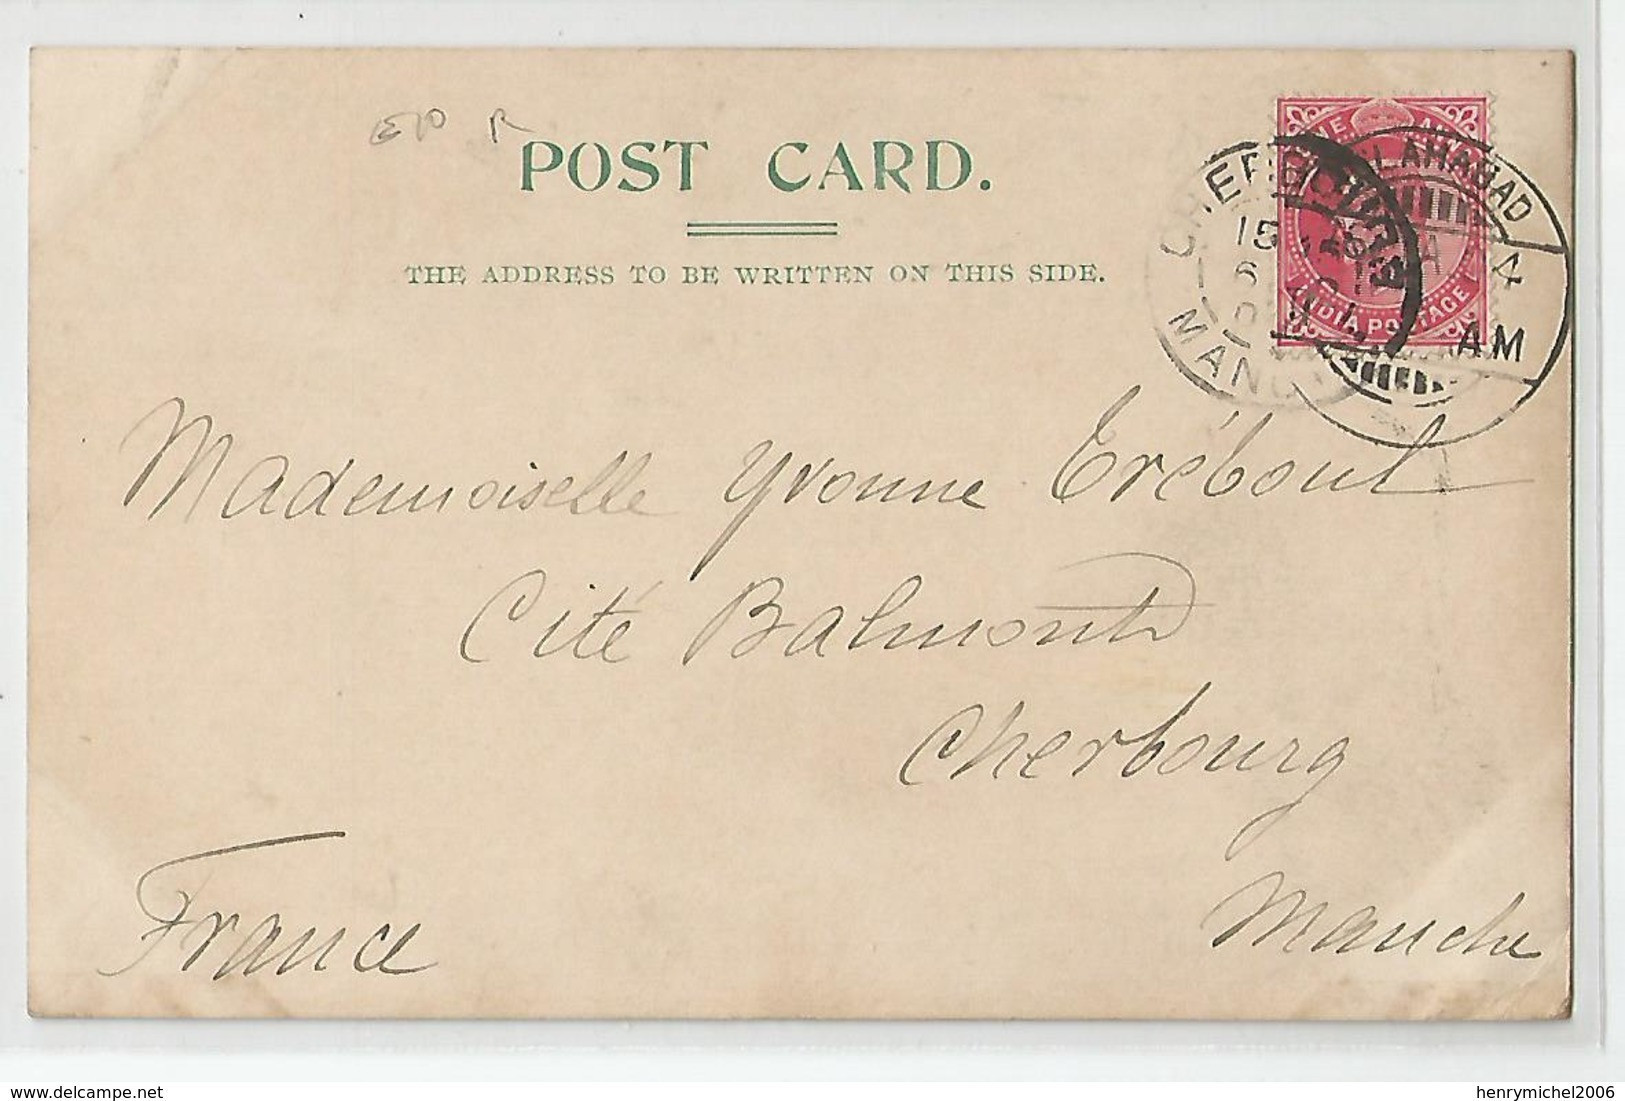 POST CARD.
THE ADDRESS TO BE WRITTEN ON THIS SIDE.
ONE ANNA
INDIA POSTAGE
ALLAHABAD
4
AM
CHERBOURG
15
MANCHE
Mademoiselle Yvonne Eréboul
Cité Balmont
Cherbourg
Manche
France
delcampe.net
henrymichel2006